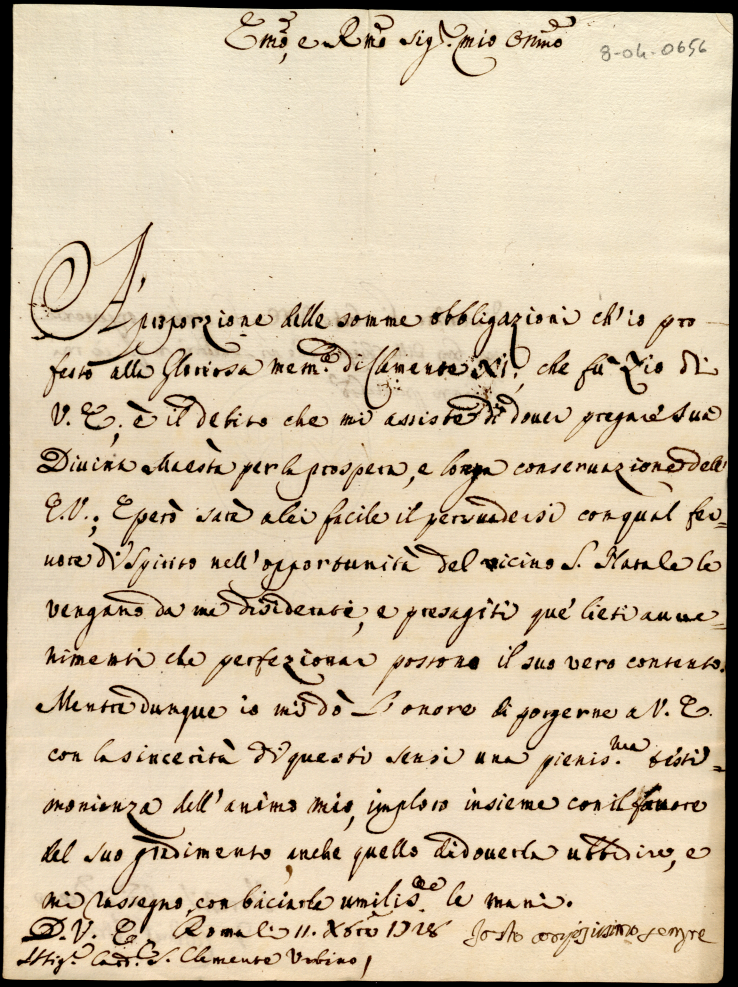 Emo, e Rmo Sig.r mio Ossmo
8-04-0656
A' proporzione delle somme obbligazioni ch'io pro
festo alla Gloriosa mem.a di Clemente XI, che fù Zio di
V. E., è il debito che mi assiste di dover pregare Sua
Divina Maestà per la prospera, e longa conservazione dell'
E.V.; E però sarà a lei facile il persuadersi con qual fer=
vore di Spirito nell'opportunità del vicino S. Natale le
vengano da me disiderati, e presagiti que' lieti avve=
nimenti che perfezionar possono il suo vero contento.
Mentre dunque io mi dò l'onore di porgerne a V. E.
con la sincerità di questi sensi una pienis.ma testi=
monianza dell'animo mio, imploro insieme con il favore
del suo gradimento anche quello di doverla ubbidire, e
mi rassegno con baciarle umilis.te le mani.
D. V. E. Roma li 11. Xbre 1728
sempre
Card. S. Clemente Urbino